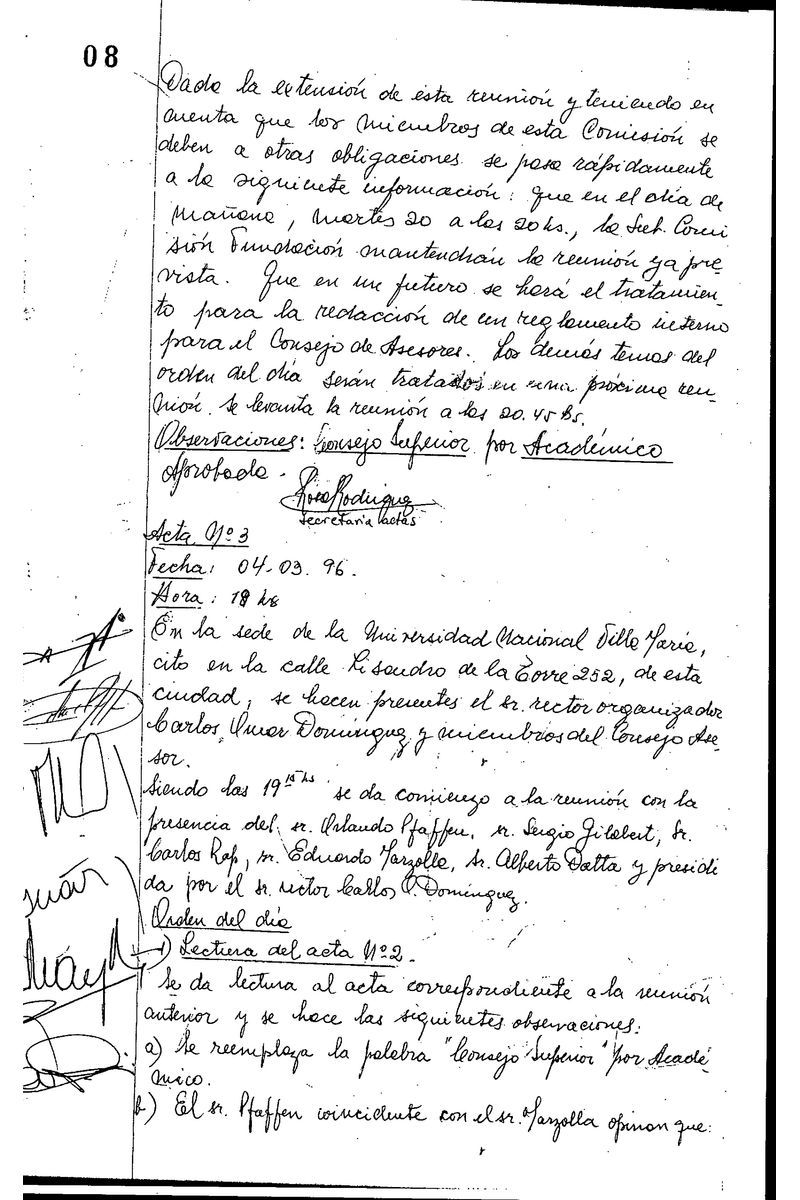 08
Dada la extensión de esta reunión y teniendo en
cuenta que los miembros de esta Comisión se
deben a otras obligaciones se pasa rápidamente
a la siguiente información: que en el día de
mañana, martes 20 a las 20 hs., la Sub. Comi
sión Fundación mantendrán la reunión ya pre-
vista. Que en un futuro se hará el tratamien-
to para la redacción de un reglamento interno
para el Consejo de Asesores. Los demás temas del
orden del día serán tratados en una próxima reu-
nión. Se levanta la reunión a las 20.45 hs.
Observaciones: Consejo Superior por Académico
Aprobada.
Rosa Rodriguez
secretaria actas
Acta Nº 3
Fecha: 04-03.96.
Hora: 18 hs
En la sede de la Universidad Nacional Villa María,
cito en la calle Lisandro de la Torre 252, de esta
ciudad, se hacen presentes el sr. rector organizador
Carlos Omar Domínguez y miembros del Consejo Ase-
sor.
Siendo las 19 15 hs se da comienzo a la reunión con la
presencia del sr. Orlando Pfaffen, sr. Sergio Gilabert, Sr.
Carlos Rap, sr. Eduardo Marzolla, Sr. Alberto Datta y presidi
da por el sr. rector Carlos O. Domínguez.
Orden del día
1) Lectura del acta Nº 2.
Se da lectura al acta correspondiente a la reunión
anterior y se hace las siguientes observaciones:
a) Se reemplaza la palabra "Consejo Superior" por Acadé-
mico.
b) El sr. Pfaffen coincidente con el sr. Marzolla opinan que: